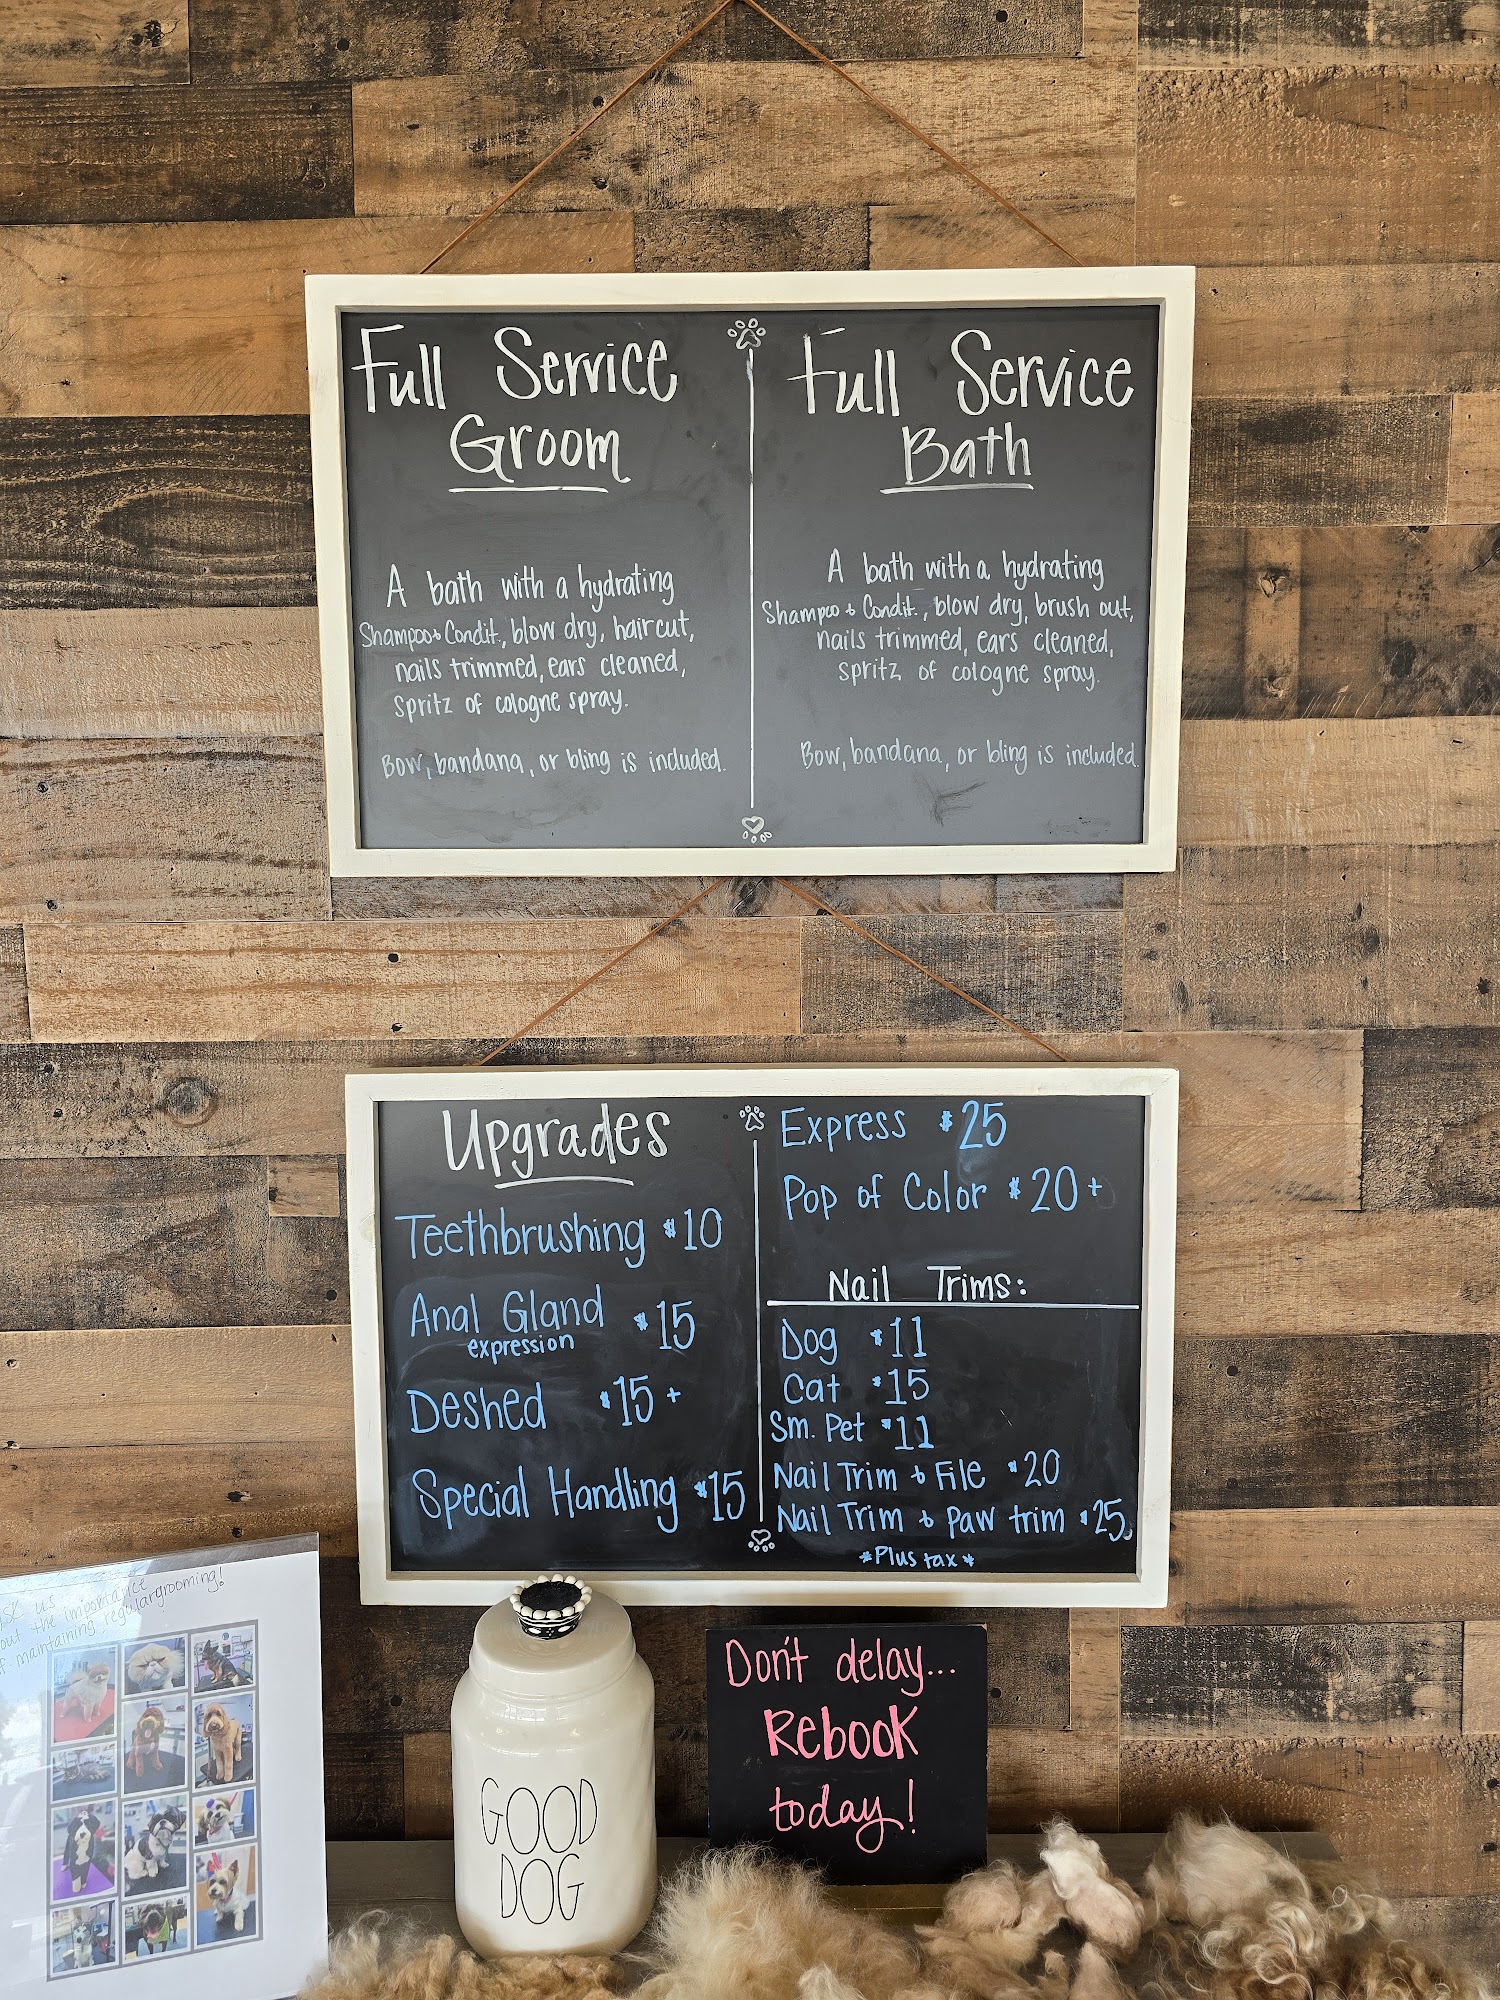 Full Service
Groom
A bath with a hydrating
Shampoo & Condit., blow dry, haircut,
nails trimmed, ears cleaned,
spritz of cologne spray.
Bow, bandana, or bling is included.
Full Service
Bath
A bath with a hydrating
Shampoo & Condit., blow dry, brush out,
nails trimmed, ears cleaned,
spritz of cologne spray.
Bow, bandana, or bling is included.
Upgrades
Teethbrushing $10
Anal Gland $15
expression
Deshed $15+
Special Handling $15
Express $25
Pop of Color $20+
Nail Trims:
Dog $11
Cat $15
Sm. Pet $11
Nail Trim & File $20
Nail Trim & Paw trim $25
*Plus tax*
us
out the importance
of maintaining regular grooming!
GOOD
DOG
Don't delay...
Rebook
today!